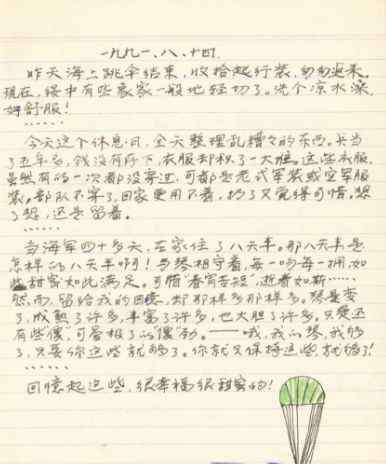 一九九一、八、十四.
昨天海上跳伞结束，收拾起行装，匆匆返来。
现在，楼中有些家家一般地轻切了。洗个凉水澡，
好舒服！
……
今天这个休息日，全天整理乱糟々的东西。兵当
了五年多，钱没有存下，衣服却积了一大堆。这些衣服，
虽然有的一次都没穿过，可都是老式军装或空军服
装。部队不穿了，回家更用不着，扔了又觉得可惜，想
了想，还是留着。
……
当海军四十多天，在家住了八天半。那八天半是
怎样的八天半啊！与琴相守着，每一吻每一拥，如
甜蜜如此满足。可惜春宵苦短，逝者如斯……
然而，留给我的回忆，却那样多那样多。琴是变
了，成熟了许多，丰富了许多，也大胆了许多。只是还
有些“傻”，可爱极了的“傻”劲。——哦，我的琴，我够
了，只要你这些就够了。你就永保持这些，就够了！
……
回忆起这些，很幸福很甜蜜的！